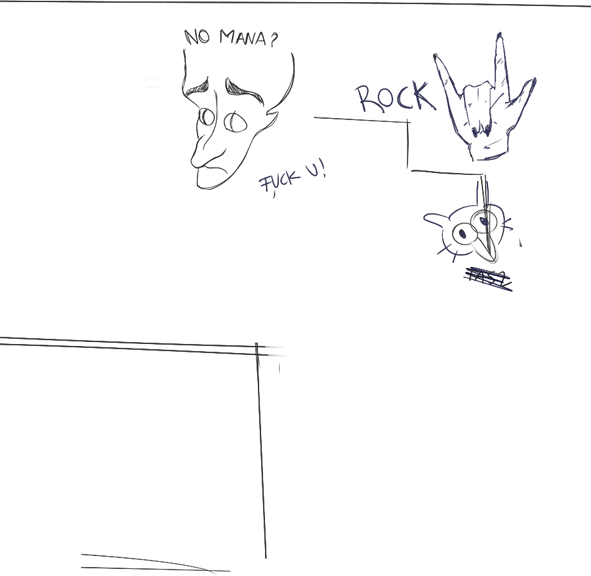 NO MANA?
ROCK
FUCK U!